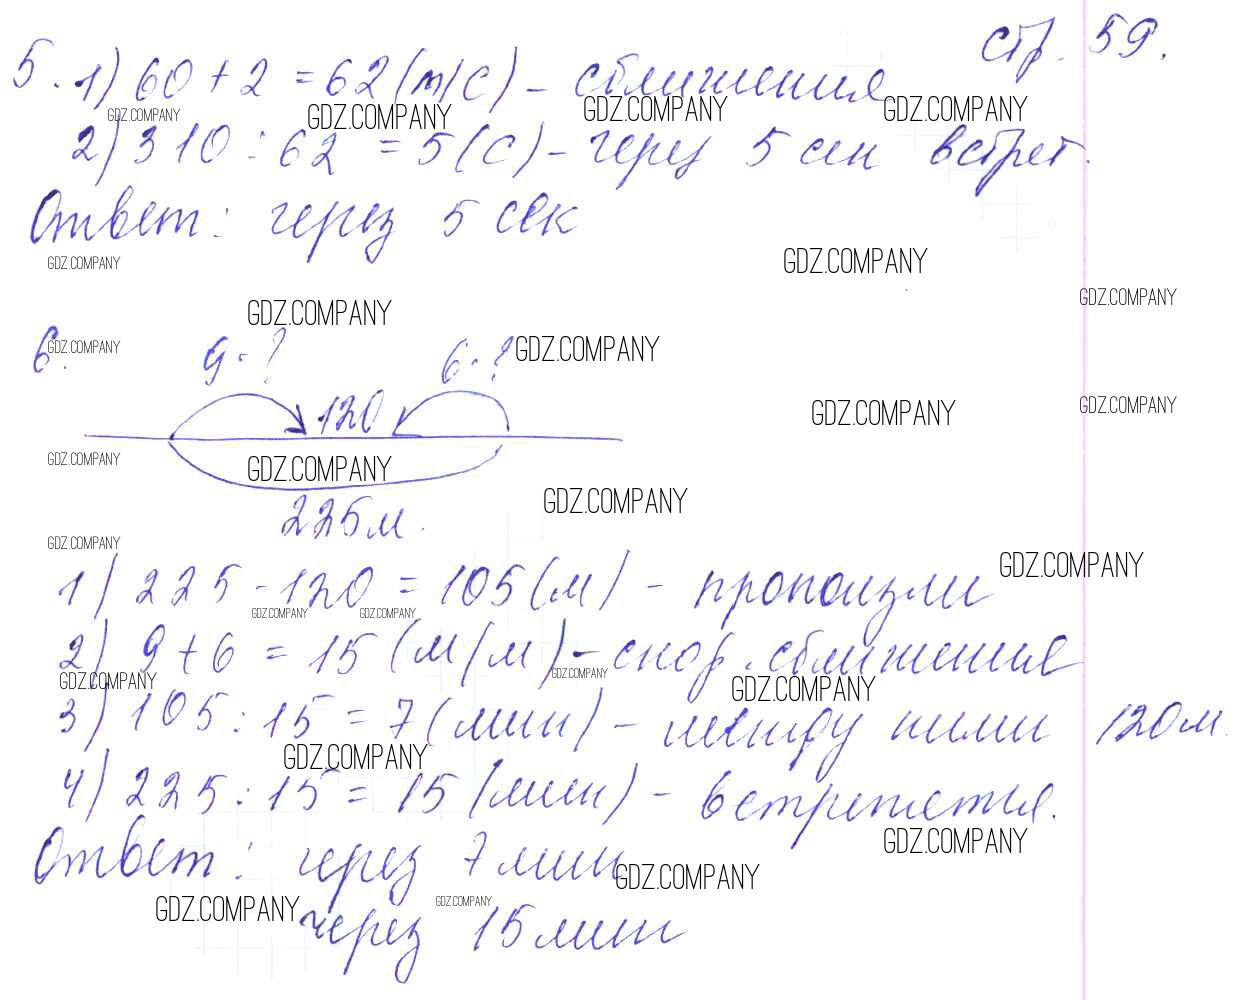 стр. 59.
5. 1) 60 + 2 = 62 (м/с) - сближения
GDZ.COMPANY GDZ.COMPANY GDZ.COMPANY GDZ.COMPANY
2) 310 : 62 = 5 (с) - через 5 сек встрет.
Ответ: через 5 сек
GDZ.COMPANY GDZ.COMPANY
GDZ.COMPANY GDZ.COMPANY
6. 9 - ? 6 - ?
GDZ.COMPANY GDZ.COMPANY
120
GDZ.COMPANY GDZ.COMPANY
GDZ.COMPANY GDZ.COMPANY
225 м.
GDZ.COMPANY
GDZ.COMPANY GDZ.COMPANY
1) 225 - 120 = 105 (м) - проползли
GDZ.COMPANY GDZ.COMPANY
2) 9 + 6 = 15 (м/м) - скор. сближения
GDZ.COMPANY GDZ.COMPANY GDZ.COMPANY
3) 105 : 15 = 7 (мин) - между ними 120 м.
GDZ.COMPANY
4) 225 : 15 = 15 (мин) - встретятся.
GDZ.COMPANY
Ответ: через 7 мин
GDZ.COMPANY
GDZ.COMPANY GDZ.COMPANY
через 15 мин